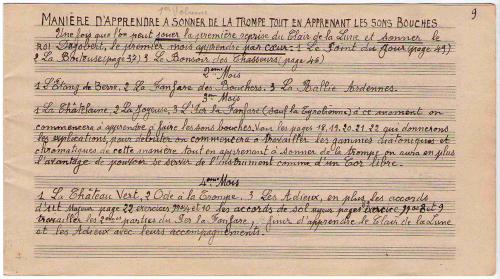 1er Volume
9
MANIÈRE D'APPRENDRE A SONNER DE LA TROMPE TOUT EN APPRENANT LES SONS BOUCHES
Une fois que l'on peut jouer la première reprise du Clair de la Lune et sonner le
Roi Dagobert, le premier mois apprendre par cœur: 1 Le Point du Jour (page 49)
2 La Bicheuse (page 37) 3 Le Bonsoir des Chasseurs (page 46)
2ème Mois
1 L'Étang de Berre. 2 La Fanfare des Bouchers. 3 La Rallie Ardennes.
3e Mois
1 La Chatelaine, 2 La Joyeuse, 3 L'Isr la Fanfare (sauf la Tyrolienne) à ce moment on
commencera à apprendre à faire les sons bouchés. Voir les pages 18, 19, 20, 21, 22 que donnerons
les explications, pour débuter on commencera à travailler les gammes diatoniques et
chromatiques de cette manière tout en apprenant à sonner de la trompe, on aura en plus
l'avantage de pouvoir se servir de l'instrument comme d'un Cor libre.
4ème Mois
1 La Château Vert, 2 Ode à la Trompe, 3 Les Adieux, en plus les accords
d'Ut Majeur page 22 exercices nos 9 et 10 les accords de sol ajeur pages exercice nos 8 et 9
travailler les 2èmes parties du Isr la Fanfare, finir d'apprendre le Clair de la Lune
et les Adieux avec leurs accompagnements.